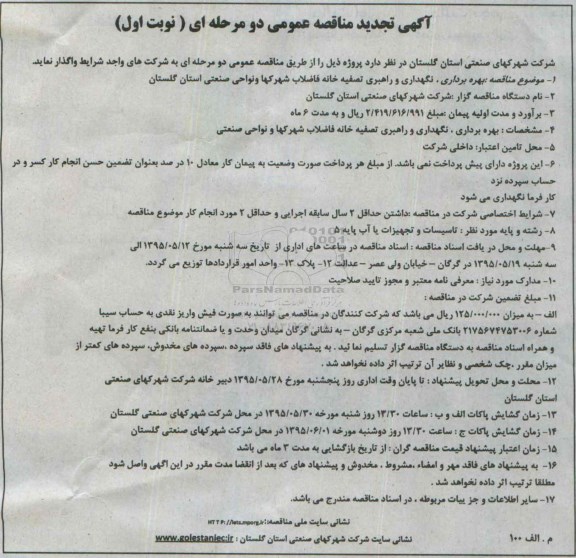 آگهی تجدید مناقصه عمومی دو مرحله ای ( نوبت اول)
شرکت شهرکهای صنعتی استان گلستان در نظر دارد پروژه ذیل را از طریق مناقصه عمومی دو مرحله ای به شرکت های واجد شرایط واگذار نماید.
۱- موضوع مناقصه :بهره برداری ، نگهداری و راهبری تصفیه خانه فاضلاب شهرکها ونواحی صنعتی استان گلستان
۲- نام دستگاه مناقصه گزار :شرکت شهرکهای صنعتی استان گلستان
۳- برآورد و مدت اولیه پیمان :مبلغ ۲/۴۱۹/۶۱۶/۹۹۱ ریال و به مدت ۶ ماه
۴- مشخصات : بهره برداری ، نگهداری و راهبری تصفیه خانه فاضلاب شهرکها و نواحی صنعتی
۵- محل تامین اعتبار: داخلی شرکت
۶- این پروژه دارای پیش پرداخت نمی باشد. از مبلغ هر پرداخت صورت وضعیت به پیمان کار معادل ۱۰ در صد بعنوان تضمین حسن انجام کار کسر و در حساب سپرده نزد
کار فرما نگهداری می شود
۷- شرایط اختصاصی شرکت در مناقصه :داشتن حداقل ۲ سال سابقه اجرایی و حداقل ۲ مورد انجام کار موضوع مناقصه
۸- رشته و پایه مورد نظر : تاسیسات و تجهیزات یا آب پایه ۵
۹- مهلت و محل در یافت اسناد مناقصه : اسناد مناقصه در ساعت های اداری از تاریخ سه شنبه مورخ ۱۳۹۵/۰۵/۱۲ الی
سه شنبه ۱۳۹۵/۰۵/۱۹ در گرگان – خیابان ولی عصر –عدالت ۱۲- پلاک ۱۳- واحد امور قراردادها توزیع می گردد.
۱۰- مدارک مورد نیاز : معرفی نامه معتبر و مجوز تایید صلاحیت
۱۱- مبلغ تضمین شرکت در مناقصه :
الف – به میزان ۱۲۵/۰۰۰/۰۰۰ ریال می باشد که شرکت کنندگان در مناقصه می توانند به صورت فیش واریز نقدی به حساب سیبا
شماره ۲۱۷۵۶۷۴۷۵۳۰۰۶ بانک ملی شعبه مرکزی گرگان – به نشانی گرگان میدان وحدت و یا ضمانتنامه بانکی بنفع کار فرما تهیه
و همراه اسناد مناقصه به دستگاه مناقصه گزار تسلیم نما ئید . به پیشنهاد های فاقد سپرده ،سپرده های مخدوش، سپرده های کمتر از
میزان مقرر ،چک شخصی و نظایر آن ترتیب اثر داده نخواهد شد .
۱۲- مهلت و محل تحویل پیشنهاد : تا پایان وقت اداری روز پنجشنبه مورخ ۱۳۹۵/۰۵/۲۸ دبیر خانه شرکت شهرکهای صنعتی
استان گلستان
۱۳- زمان گشایش پاکات الف و ب : ساعات ۱۳/۳۰ روز شنبه مورخه ۱۳۹۵/۰۵/۳۰ در محل شرکت شهرکهای صنعتی گلستان
۱۴- زمان گشایش پاکات ج : ساعت ۱۳/۳۰ روز دوشنبه مورخه ۱۳۹۵/۰۶/۰۱ در محل شرکت شهرکهای صنعتی گلستان
۱۵- زمان اعتبار پیشنهاد قیمت مناقصه گران : از تاریخ بازگشایی به مدت ۳ ماه می باشد
۱۶- به پیشنهاد های فاقد مهر و امضاء ،مشروط ، مخدوش و پیشنهاد های که بعد از انقضا مدت مقرر در این اگهی واصل شود
مطلقا ترتیب اثر داده نخواهد شد .
۱۷- سایر اطلاعات و جز ییات مربوطه ، در اسناد مناقصه مندرج می باشد.
نشانی سایت ملی مناقصه: HTTP://iets.mporg.ir
نشانی سایت شرکت شهرکهای صنعتی استان گلستان : www.golestaniec.ir
م . الف ۱۰۰
ParsNamadData